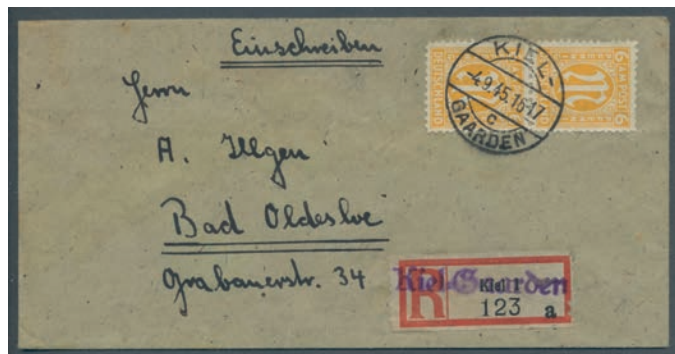 Einschreiben
Herrn
A. Illgen
Bad Oldesloe
Grabauerstr. 34
KIEL-
-4.9.45.16-17
c
GAARDEN
DEUTSCHLAND
6 AM POST 6
Kiel-Gaarden
R
Kiel 1
123 a